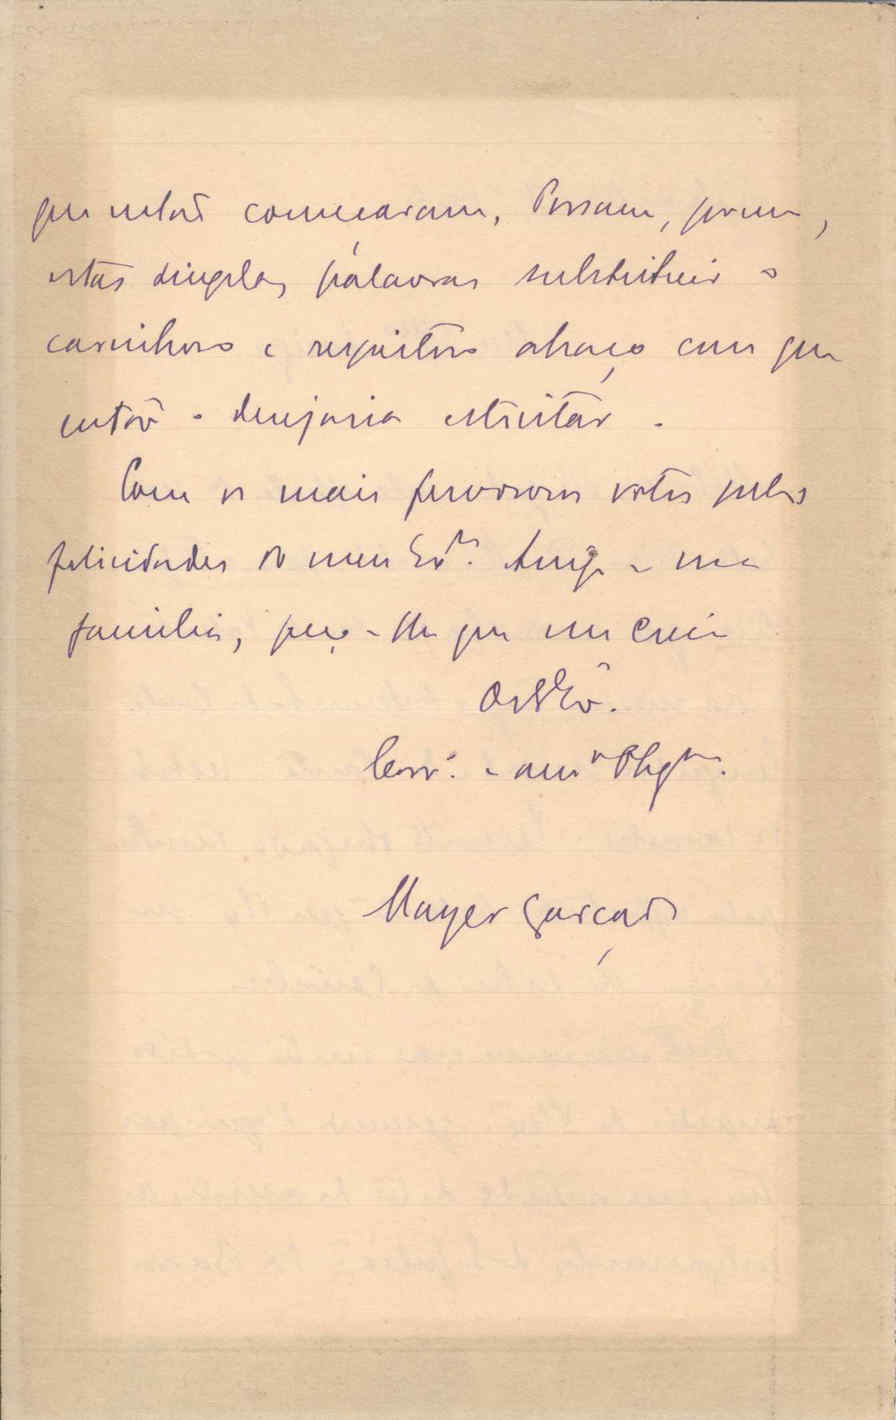 que então começaram. Possam, porem,
estas singelas palavras substituir o
carinhoso e respeitoso abraço com que
então o desejaria estreitar.
Com os mais fervorosos votos pelas
felicidades do meu Exmo. Amigo e sua
familia, peço-lhe que me creia
De V. Exa.
Corr.o e amo obgmo.
Mayer Garção